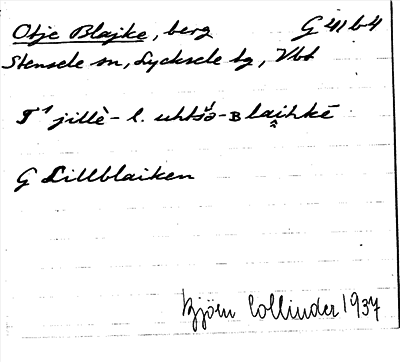 Otje Blajke, berg G 41 b 4
Stensele sn, Lycksele lg, Vbt
T¹ jillè- l. uhtsə́-Blai̭hkē
G Lillblaiken
Björn Collinder 1937